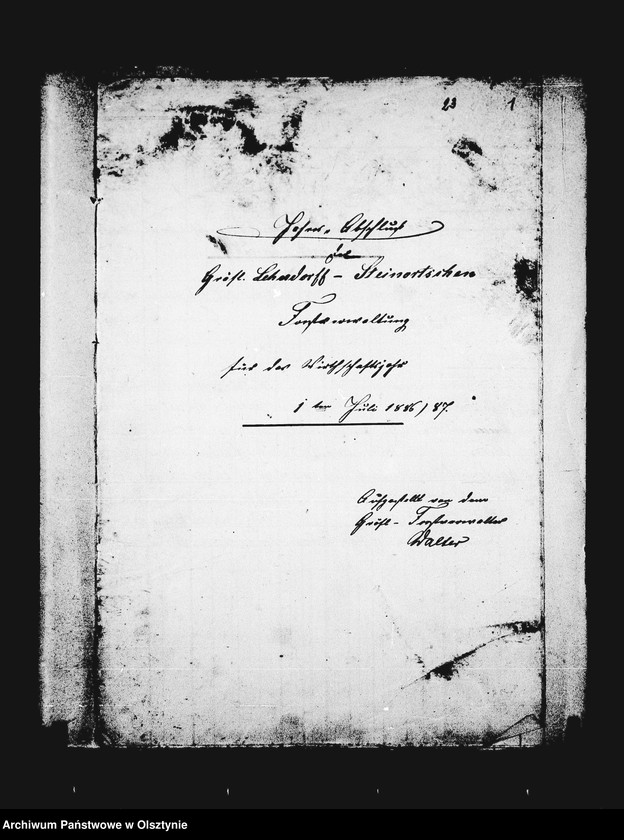 23 1
Jahres-Abschluß
der
Gräfl. Lehndorff-Steinortschen
Forstverwaltung
für das Wirthschaftsjahr
1 ten Juli 1886/87.
Aufgestellt von dem
Gräfl- Forstverwalter
Walter
Archiwum Państwowe w Olsztynie